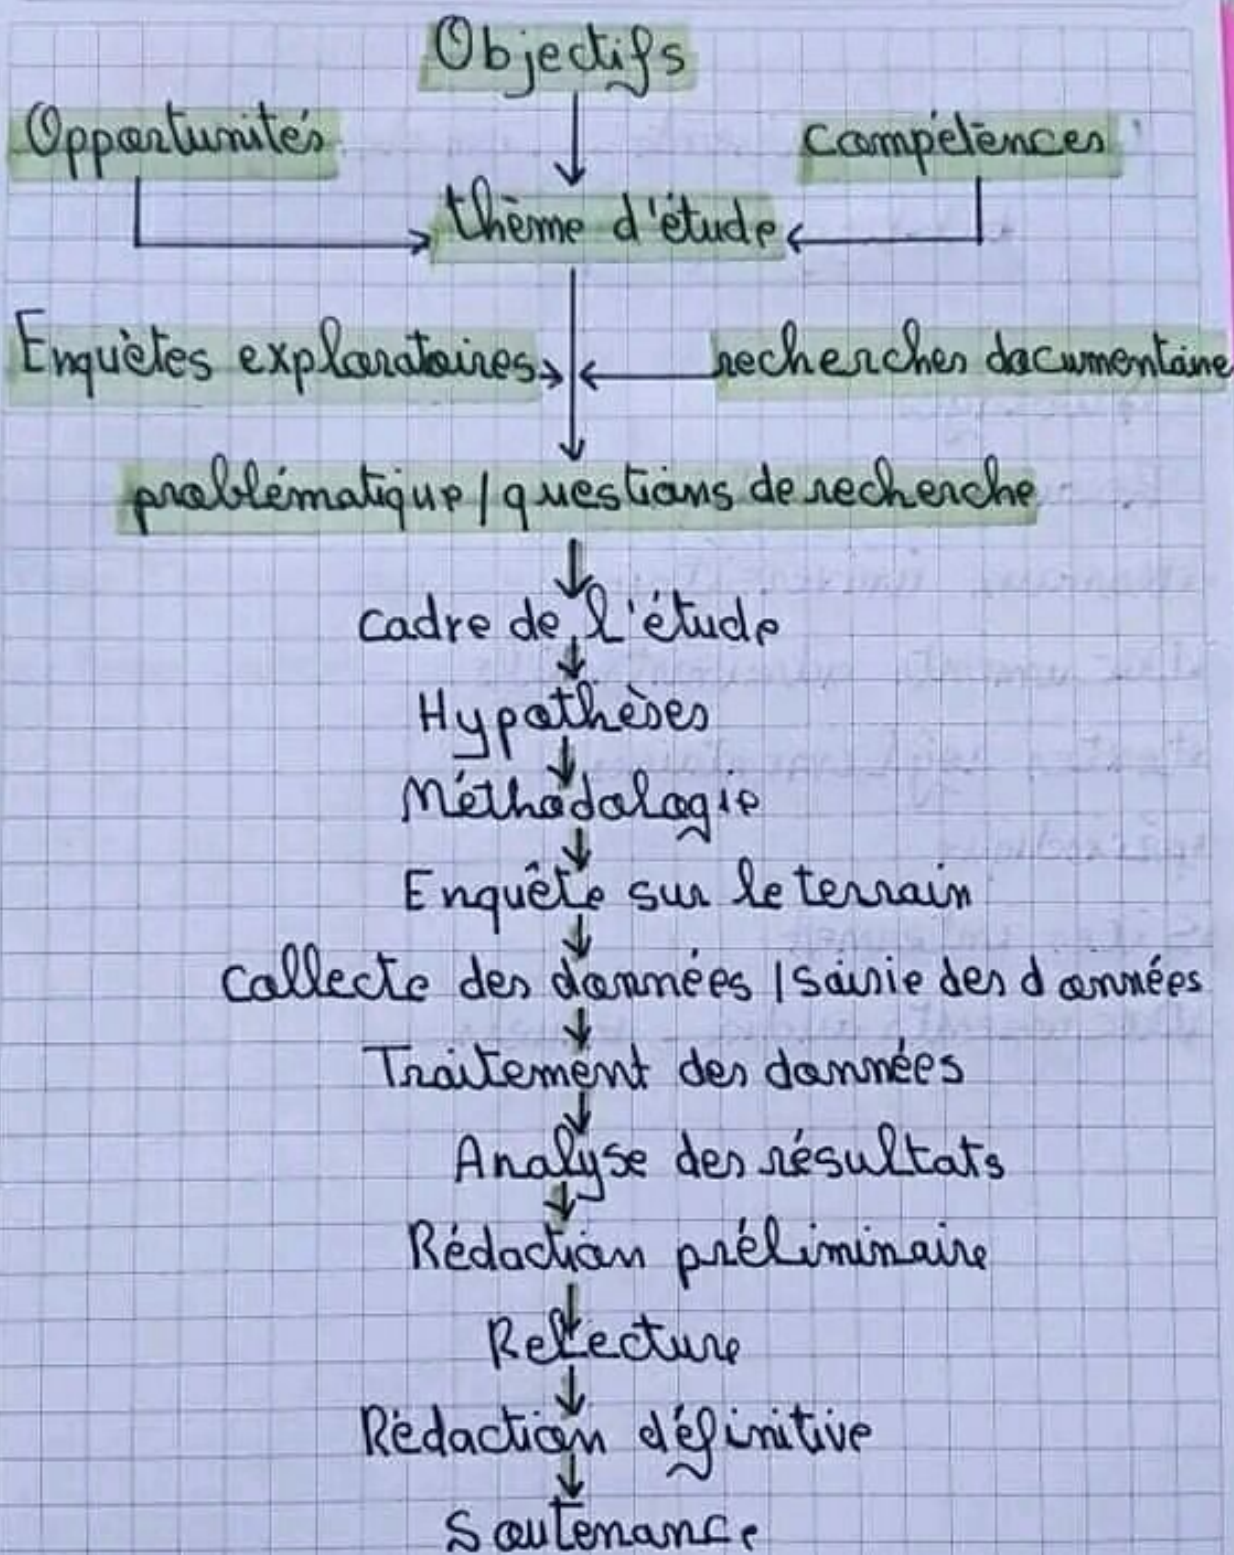 Objectifs
Opportunités
Compétences
thème d'étude
Enquètes exploratoires
recherches documentaire
problématique / questions de recherche
cadre de l'étude
Hypothèses
Méthodologie
Enquête sur le terrain
Collecte des données / Saisie des données
Traitement des données
Analyse des résultats
Rédaction préliminaire
Relecture
Rédaction définitive
Soutenance